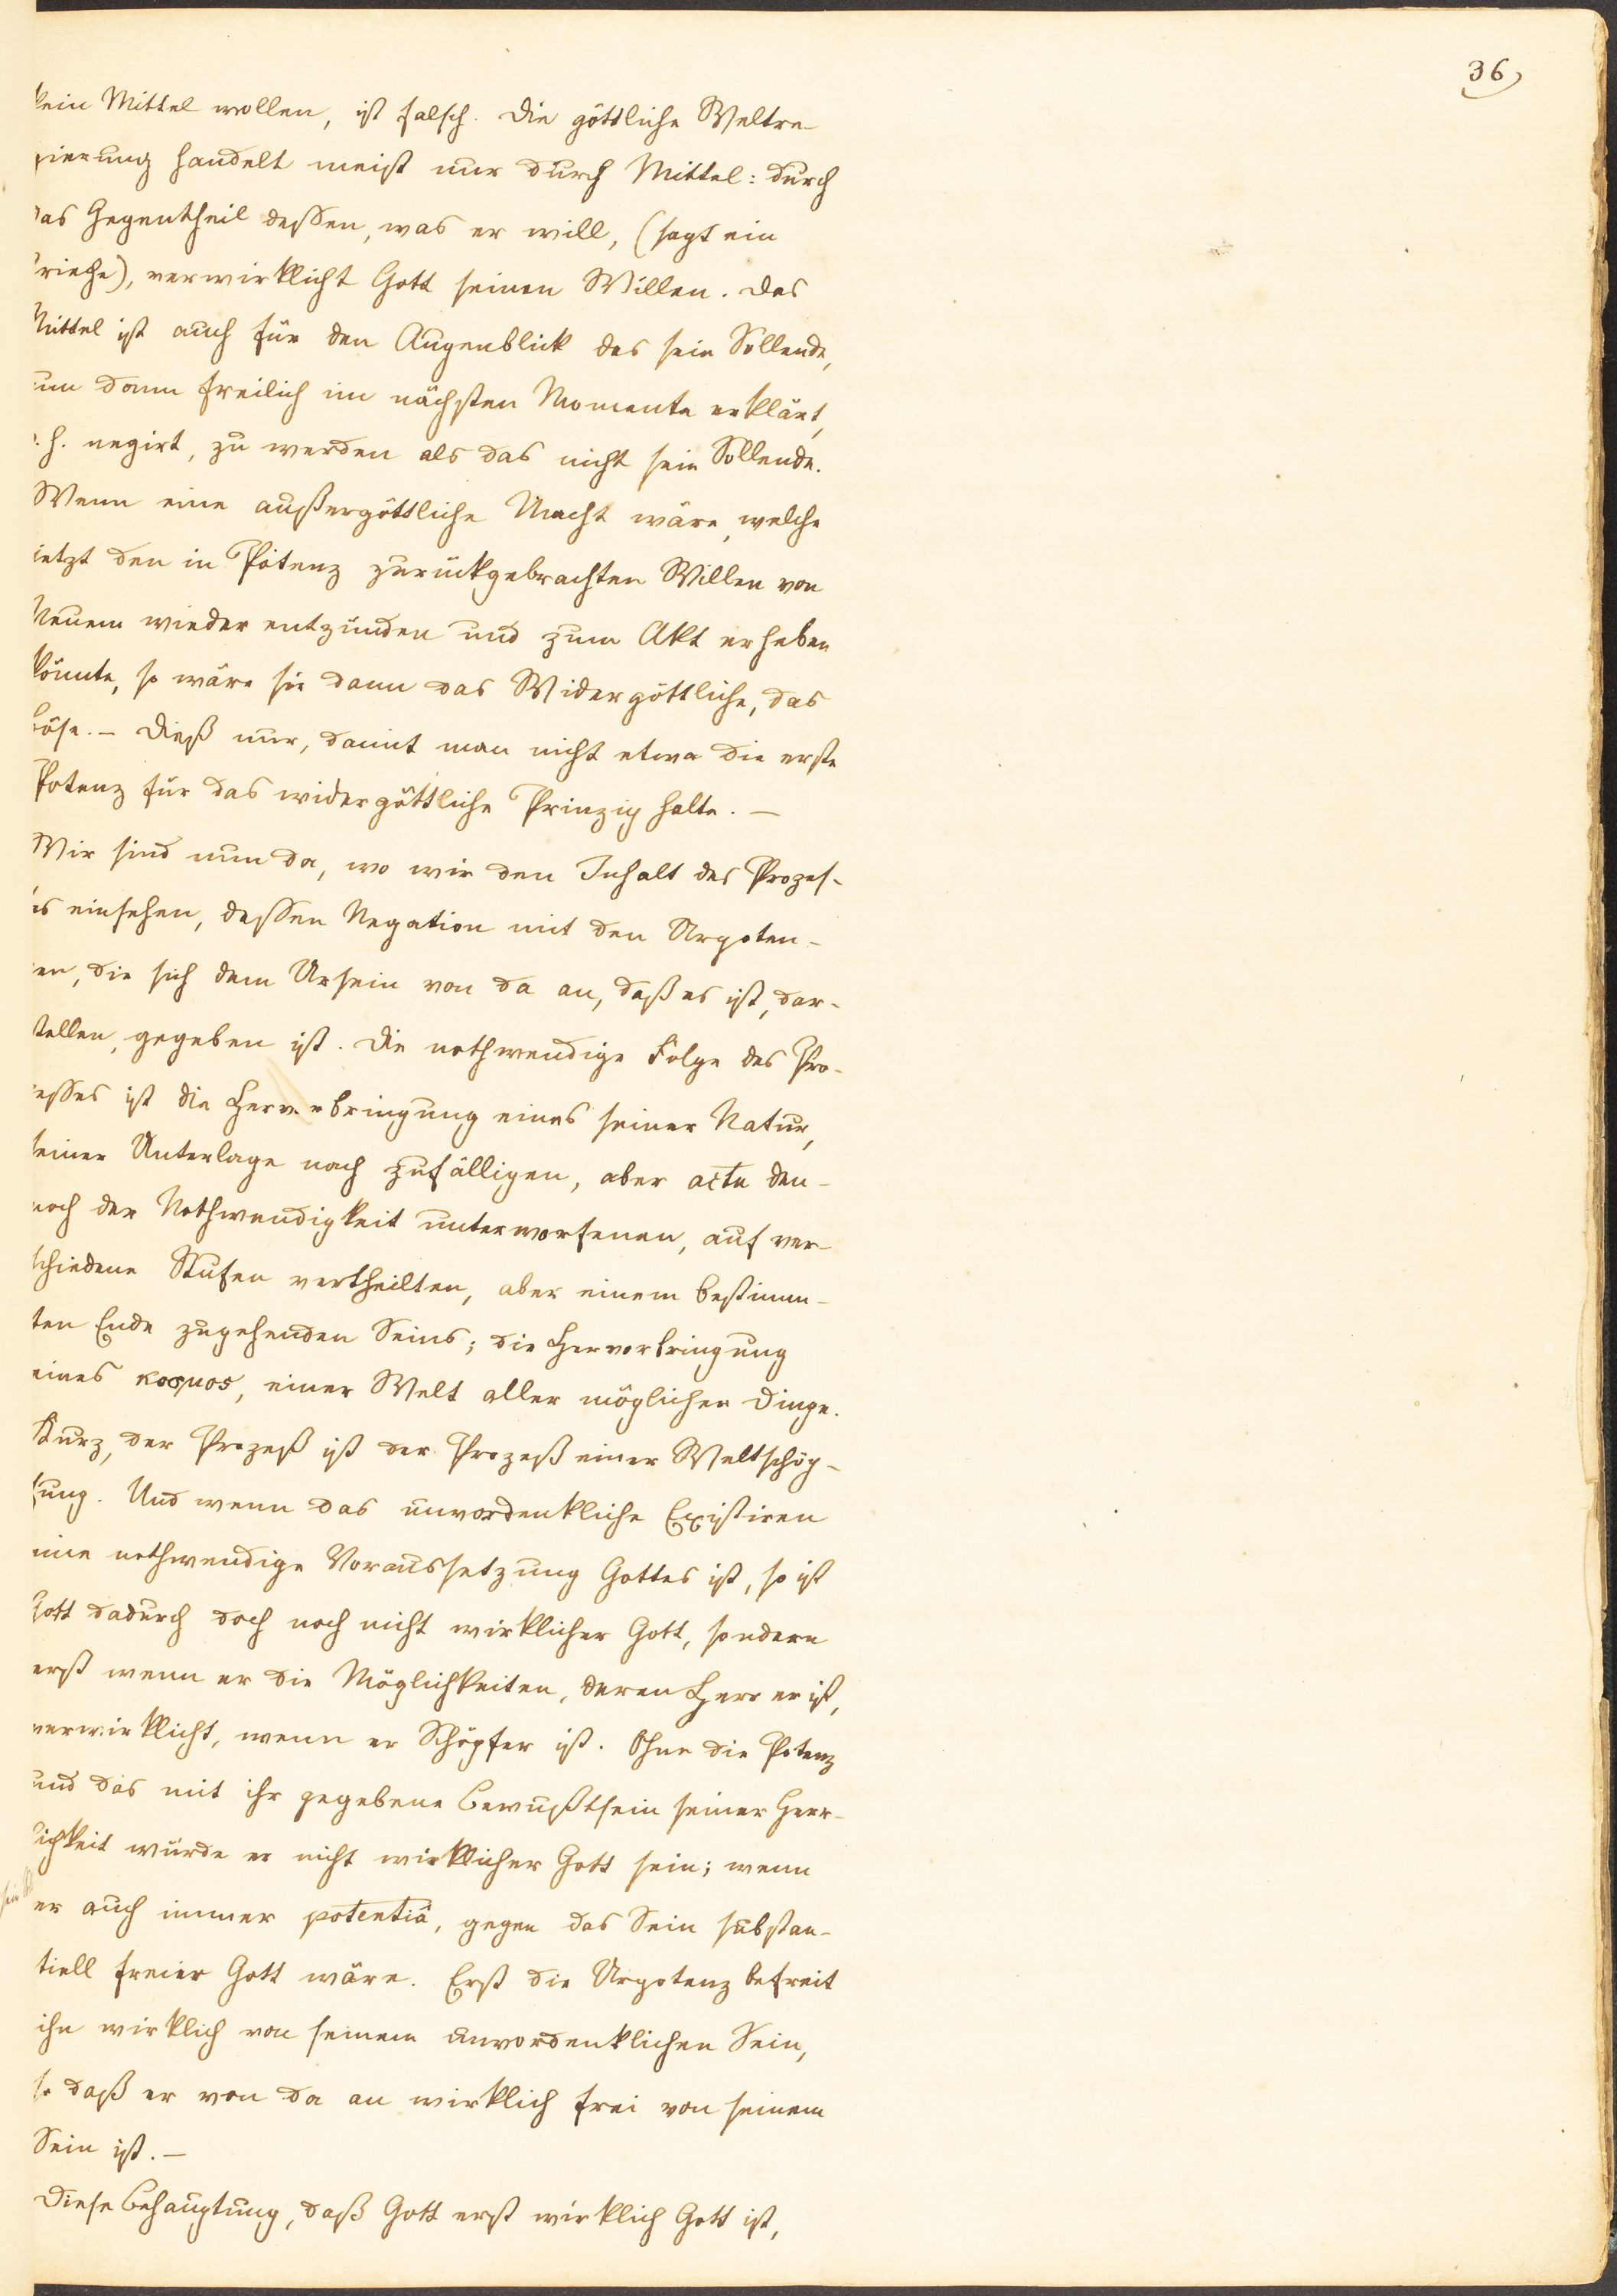 36
kein Mittel wollen, ist falsch. Die göttliche Weltre-
gierung handelt meist nur durch Mittel: durch
das Gegentheil dessen, was er will, (sagt ein
Grieche), verwirklicht Gott seinen Willen. Das
Mittel ist auch für den Augenblick das sein Sollende,
um dann freilich im nächsten Momente erklärt,
d. h. negirt, zu werden als das nicht sein Sollende.
Wenn eine außergöttliche Macht wäre, welche
jetzt den in Potenz zurückgebrachten Willen von
Neuem wieder entzünden und zum Akt erheben
könnte, so wäre sie dann das Widergöttliche, das
Böse. – Dieß nur, damit man nicht etwa die erste
Potenz für das widergöttliche Prinzip halte. —
Wir sind nun da, wo wir den Inhalt des Prozes-
ses einsehen, dessen Negation mit den Urpoten-
zen, die sich dem Ursein von da an, daß es ist, dar-
stellen, gegeben ist. Die nothwendige Folge des Pro-
zesses ist die Hervorbringung eines seiner Natur,
seiner Unterlage nach zufälligen, aber actu den-
noch der Nothwendigkeit unterworfenen, auf ver-
schiedene Stufen vertheilten, aber einem bestimm-
ten Ende zugehenden Seins; die Hervorbringung
eines κοσμος, einer Welt aller möglichen Dinge.
Kurz, der Prozeß ist der Prozeß einer Weltschöp-
fung. Und wenn das unvordenkliche Existiren
eine nothwendige Voraussetzung Gottes ist, so ist
Gott dadurch doch noch nicht wirklicher Gott, sondern
erst wenn er die Möglichkeiten, deren Herr er ist,
verwirklicht, wenn er Schöpfer ist. Ohne die Potenz
und das mit ihr gegebene Bewußtsein seiner Herr-
lichkeit würde er nicht wirklicher Gott sein; wenn
er auch immer potentiâ, gegen das Sein substan-
tiell freier Gott wäre. Erst die Urpotenz befreit
ihn wirklich von seinem unvordenklichen Sein,
so daß er von da an wirklich frei von seinem
Sein ist. —
Diese Behauptung, daß Gott erst wirklich Gott ist,